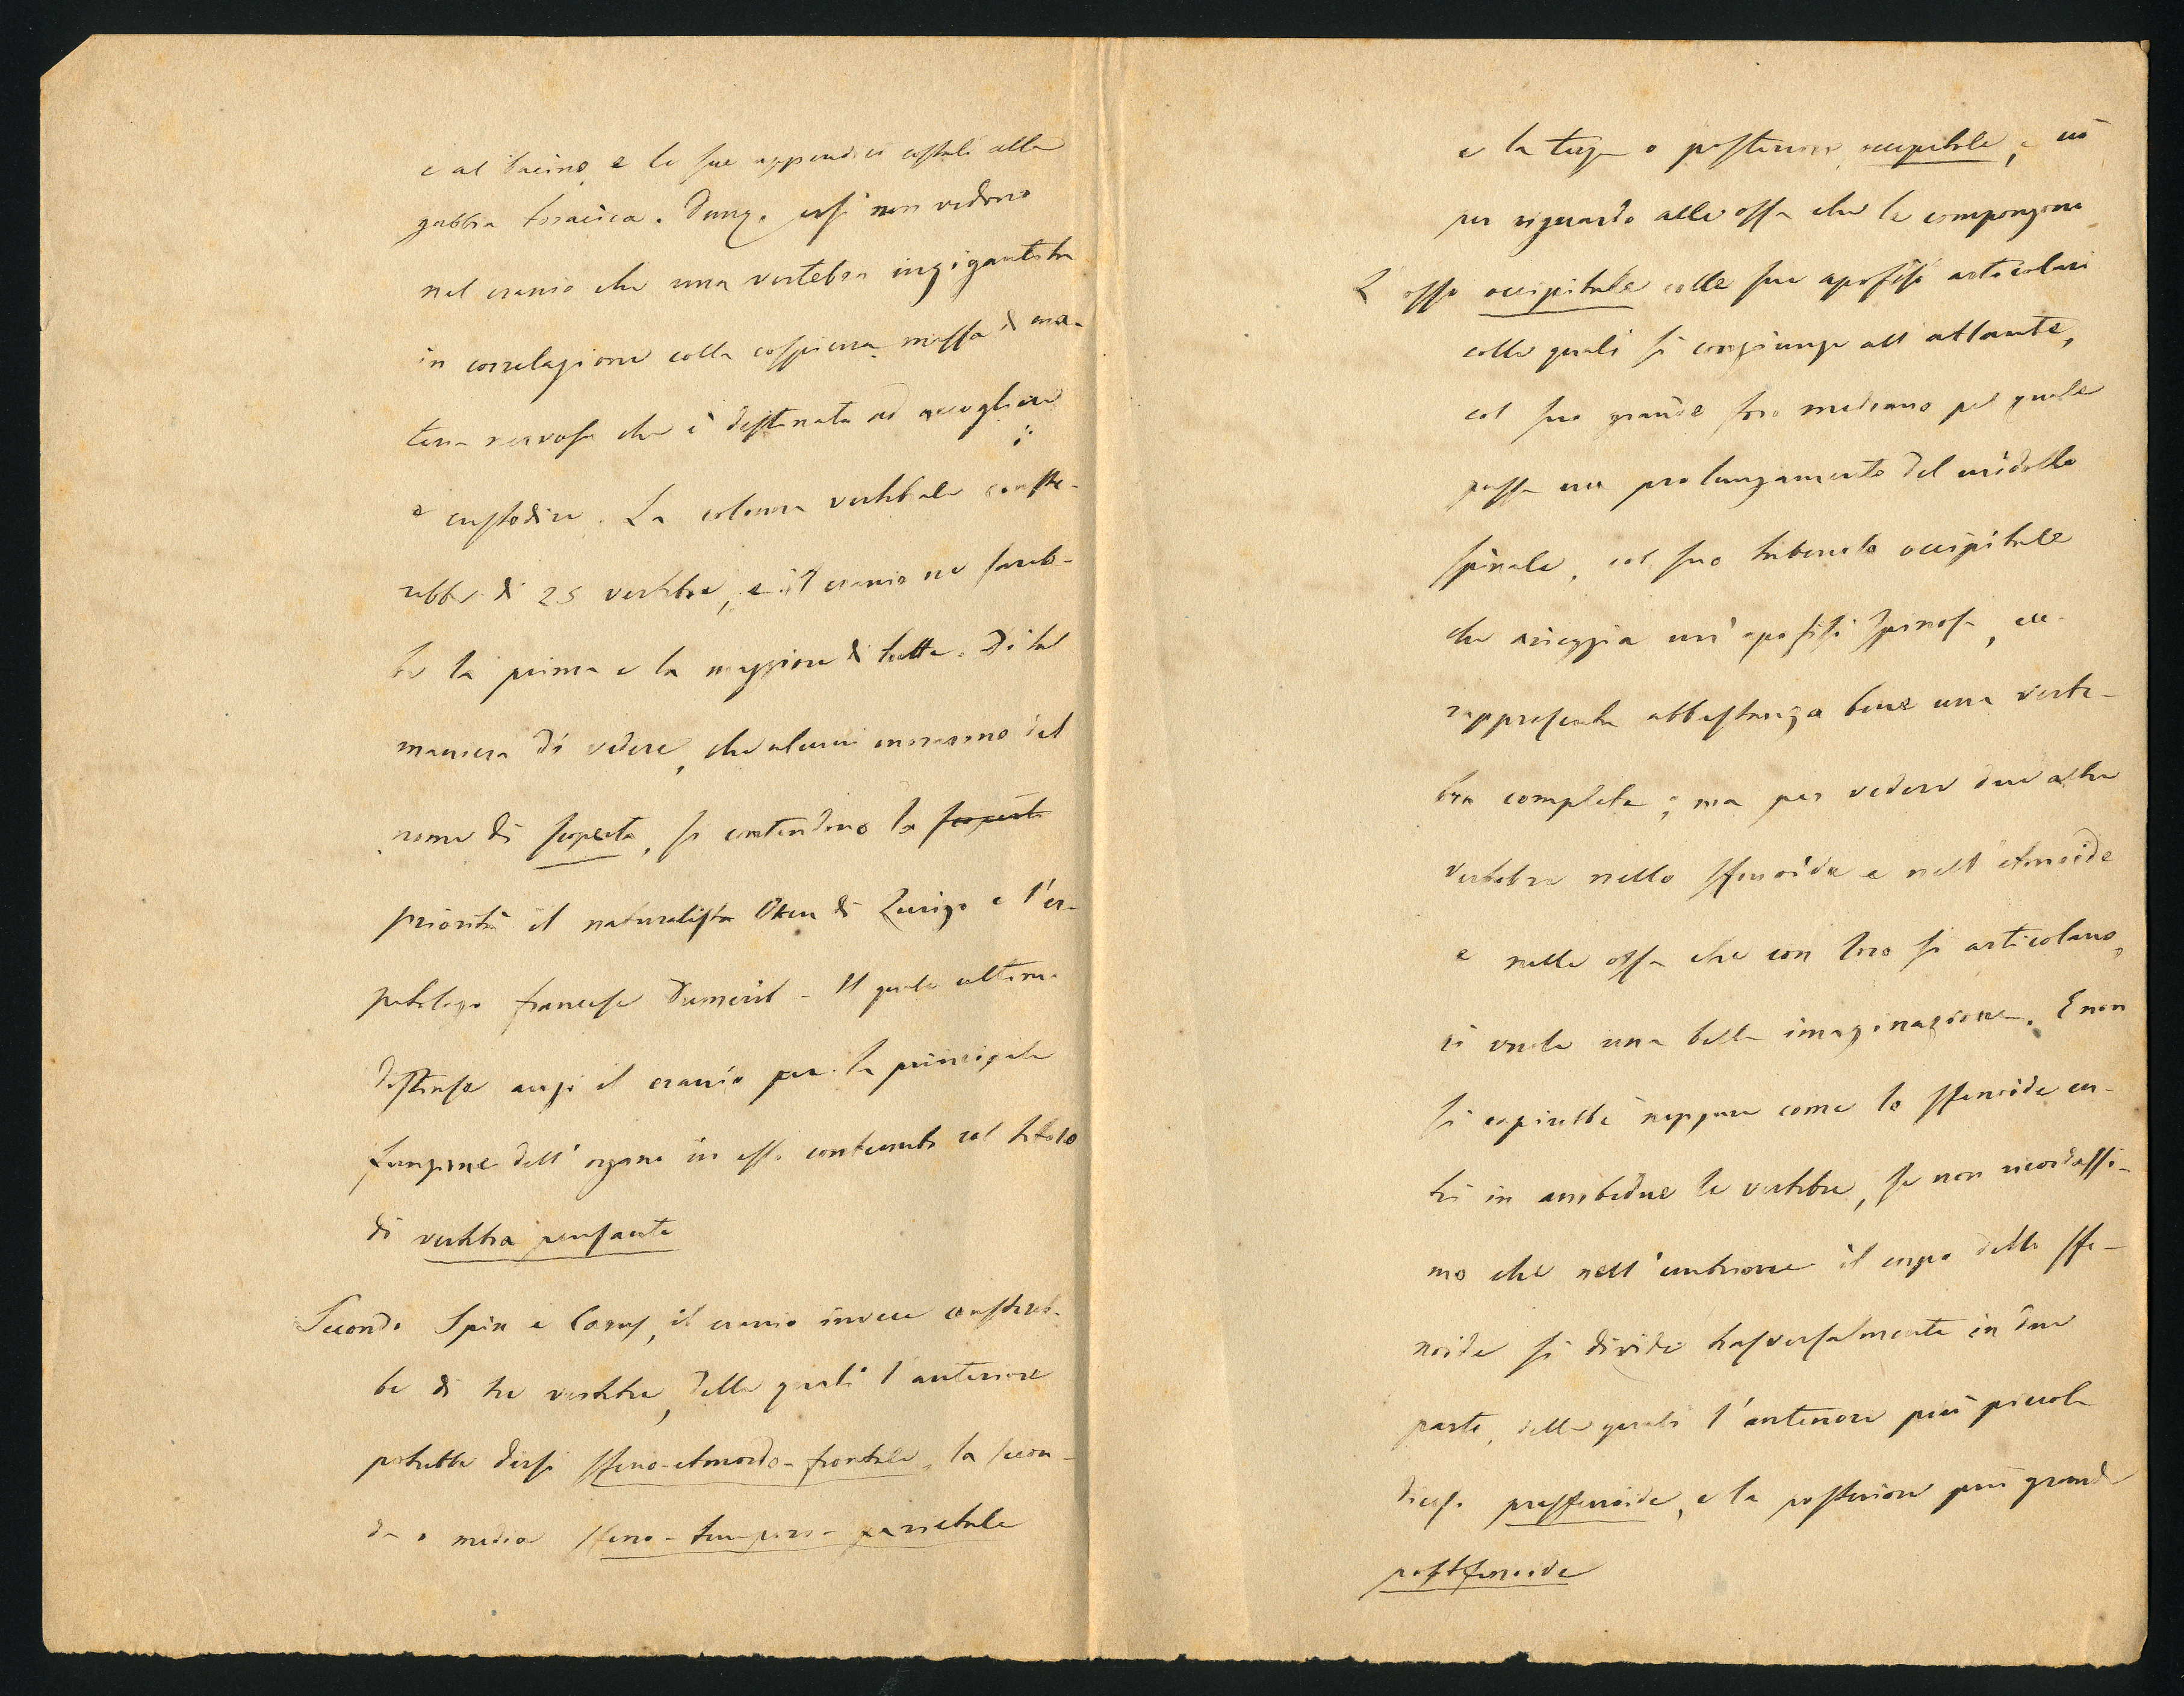 e al bacino e le sue appendici costali alla
gabbia toracica. Dunq. essi non vedono
nel cranio che una vertebra ingigantita
in correlazione colla cospicua massa di ma-
teria nervosa che è destinata ad accogliere
e custodire. La colonna vertebrale conste-
rebbe di 25 vertebre, e il cranio ne sareb-
be la prima e la maggiore di tutte. Di tal
maniera di vedere, che alcuni onorarono del
nome di scoperta, si contendono la scoperta
priorità il naturalista Oken di Zurigo e l'er-
petologo francese Dumeril - Il quale ultimo
distinse anzi il cranio per la principale
funzione dell' organo in esso contenuto col titolo
di vertebra pensante
Secondo Spix e Carus, il cranio invece constereb-
be di tre vertebre, delle quali l'anteriore
potrebbe dirsi sfeno-etmoido-frontale, la secon-
da o media sfeno-temporo-parietale
e la terza o posteriore occipitale, e ciò
per riguardo alle ossa che le compongono
L'osso occipitale colle sue apofisi articolari
colle quali si congiunge all'atlante,
col suo grande foro mediano pel quale
passa un prolungamento del midollo
spinale, col suo tubercolo occipitale
che arieggia un'apofisi spinosa, ecc.
rappresenta abbastanza bene una verte-
bra completa; ma per vedere due altre
vertebre nello sfenoide e nell'etmoide
e nelle ossa che con loro si articolano,
ci vuole una bella imaginazione. E non
si capirebbe neppure come lo sfenoide en-
tri in ambedue le vertebre, se non ricordassi-
mo che nell'embrione il corpo dello sfe-
noide si divide trasversalmente in due
parti, delle quali l'anteriore più piccola
dicesi presfenoide, e la posteriore più grande
postsfenoide